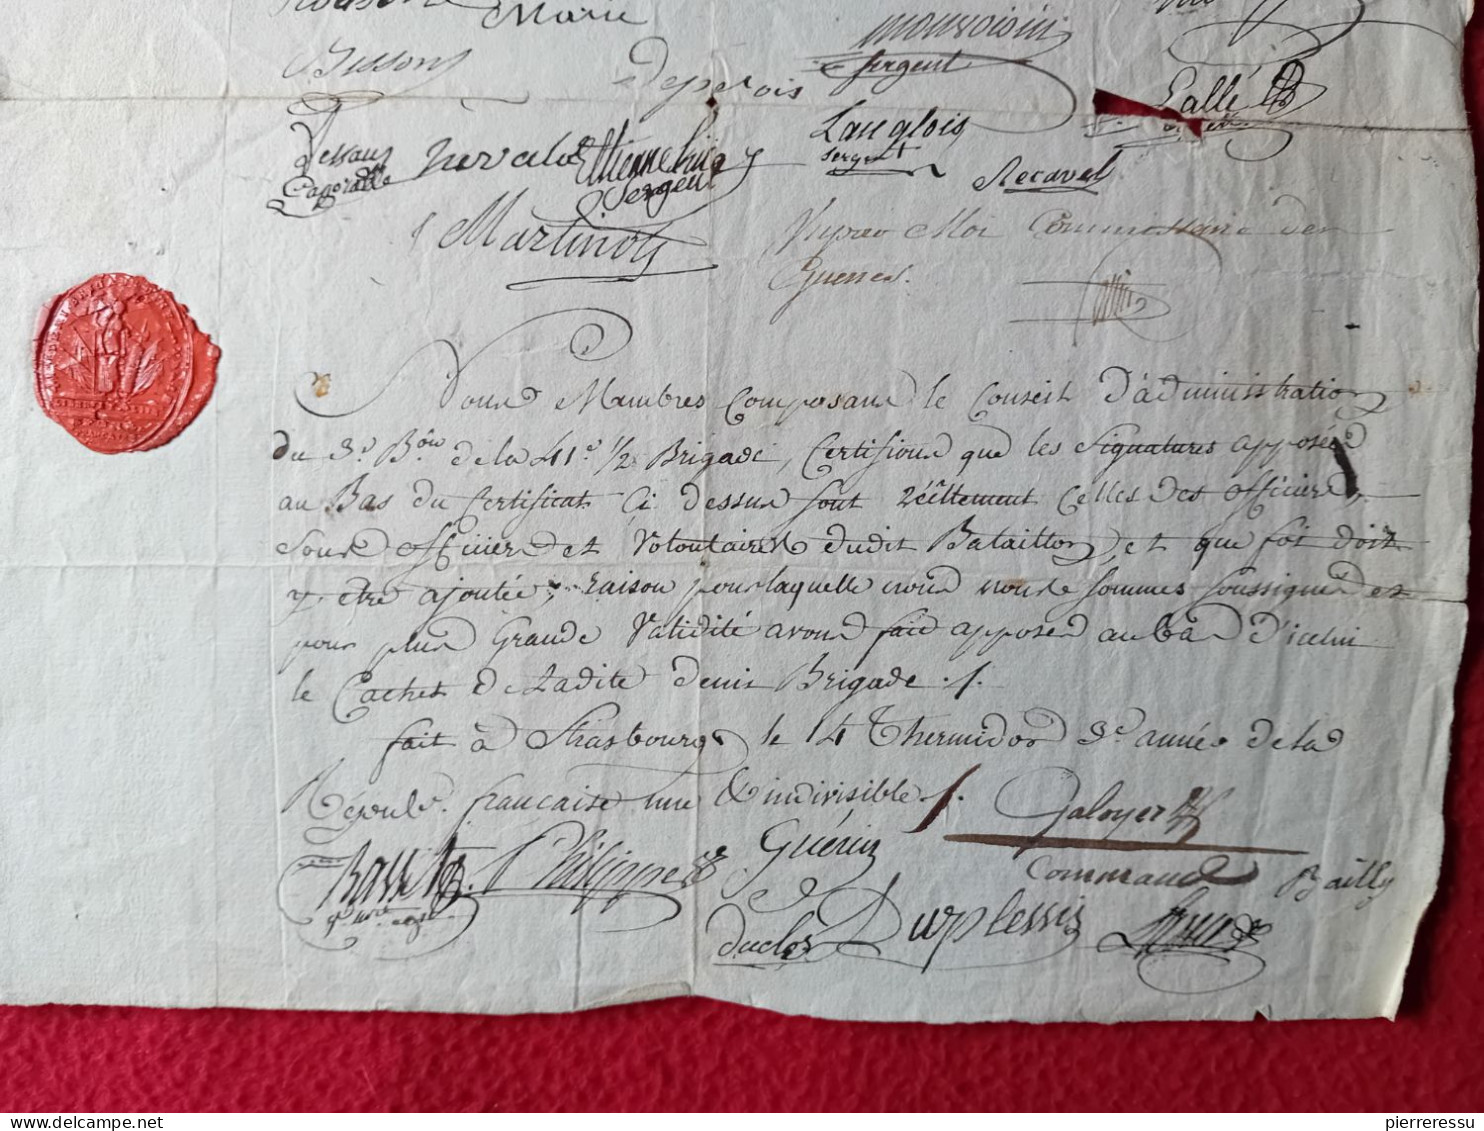 Marie
Bisson
Deperois
monvoisin
Sergent
Lallé
Dessaux
Caporalle
Etienne
Sergent
Langlois
Sergent
Recavel
Martinot
Vu par Moi Commissaire des
Guerres.
Nous Membres Composant le Conseil D'administration
du 3e. Bon. de la 41e. 1/2 Brigade, Certifions que les Signatures apposées
au Bas du Certificat Ci dessus sont réellement Celles des officiers,
sous officiers et Volontaires dudit Bataillon, et que foi doit
y être ajoutée; raison pour laquelle nous nous sommes soussignés et
pour plus Grande Validité avons fait apposer au bas d'icelui
le Cachet de Ladite demie Brigade ./.
fait à Strasbourg le 14 Thermidor 3e. année de la
Republ. française une & indivisible ./.
Galoyer
Commandt
Bailly
Philippe
Guérin
duclos
Durplessis
pierreressu